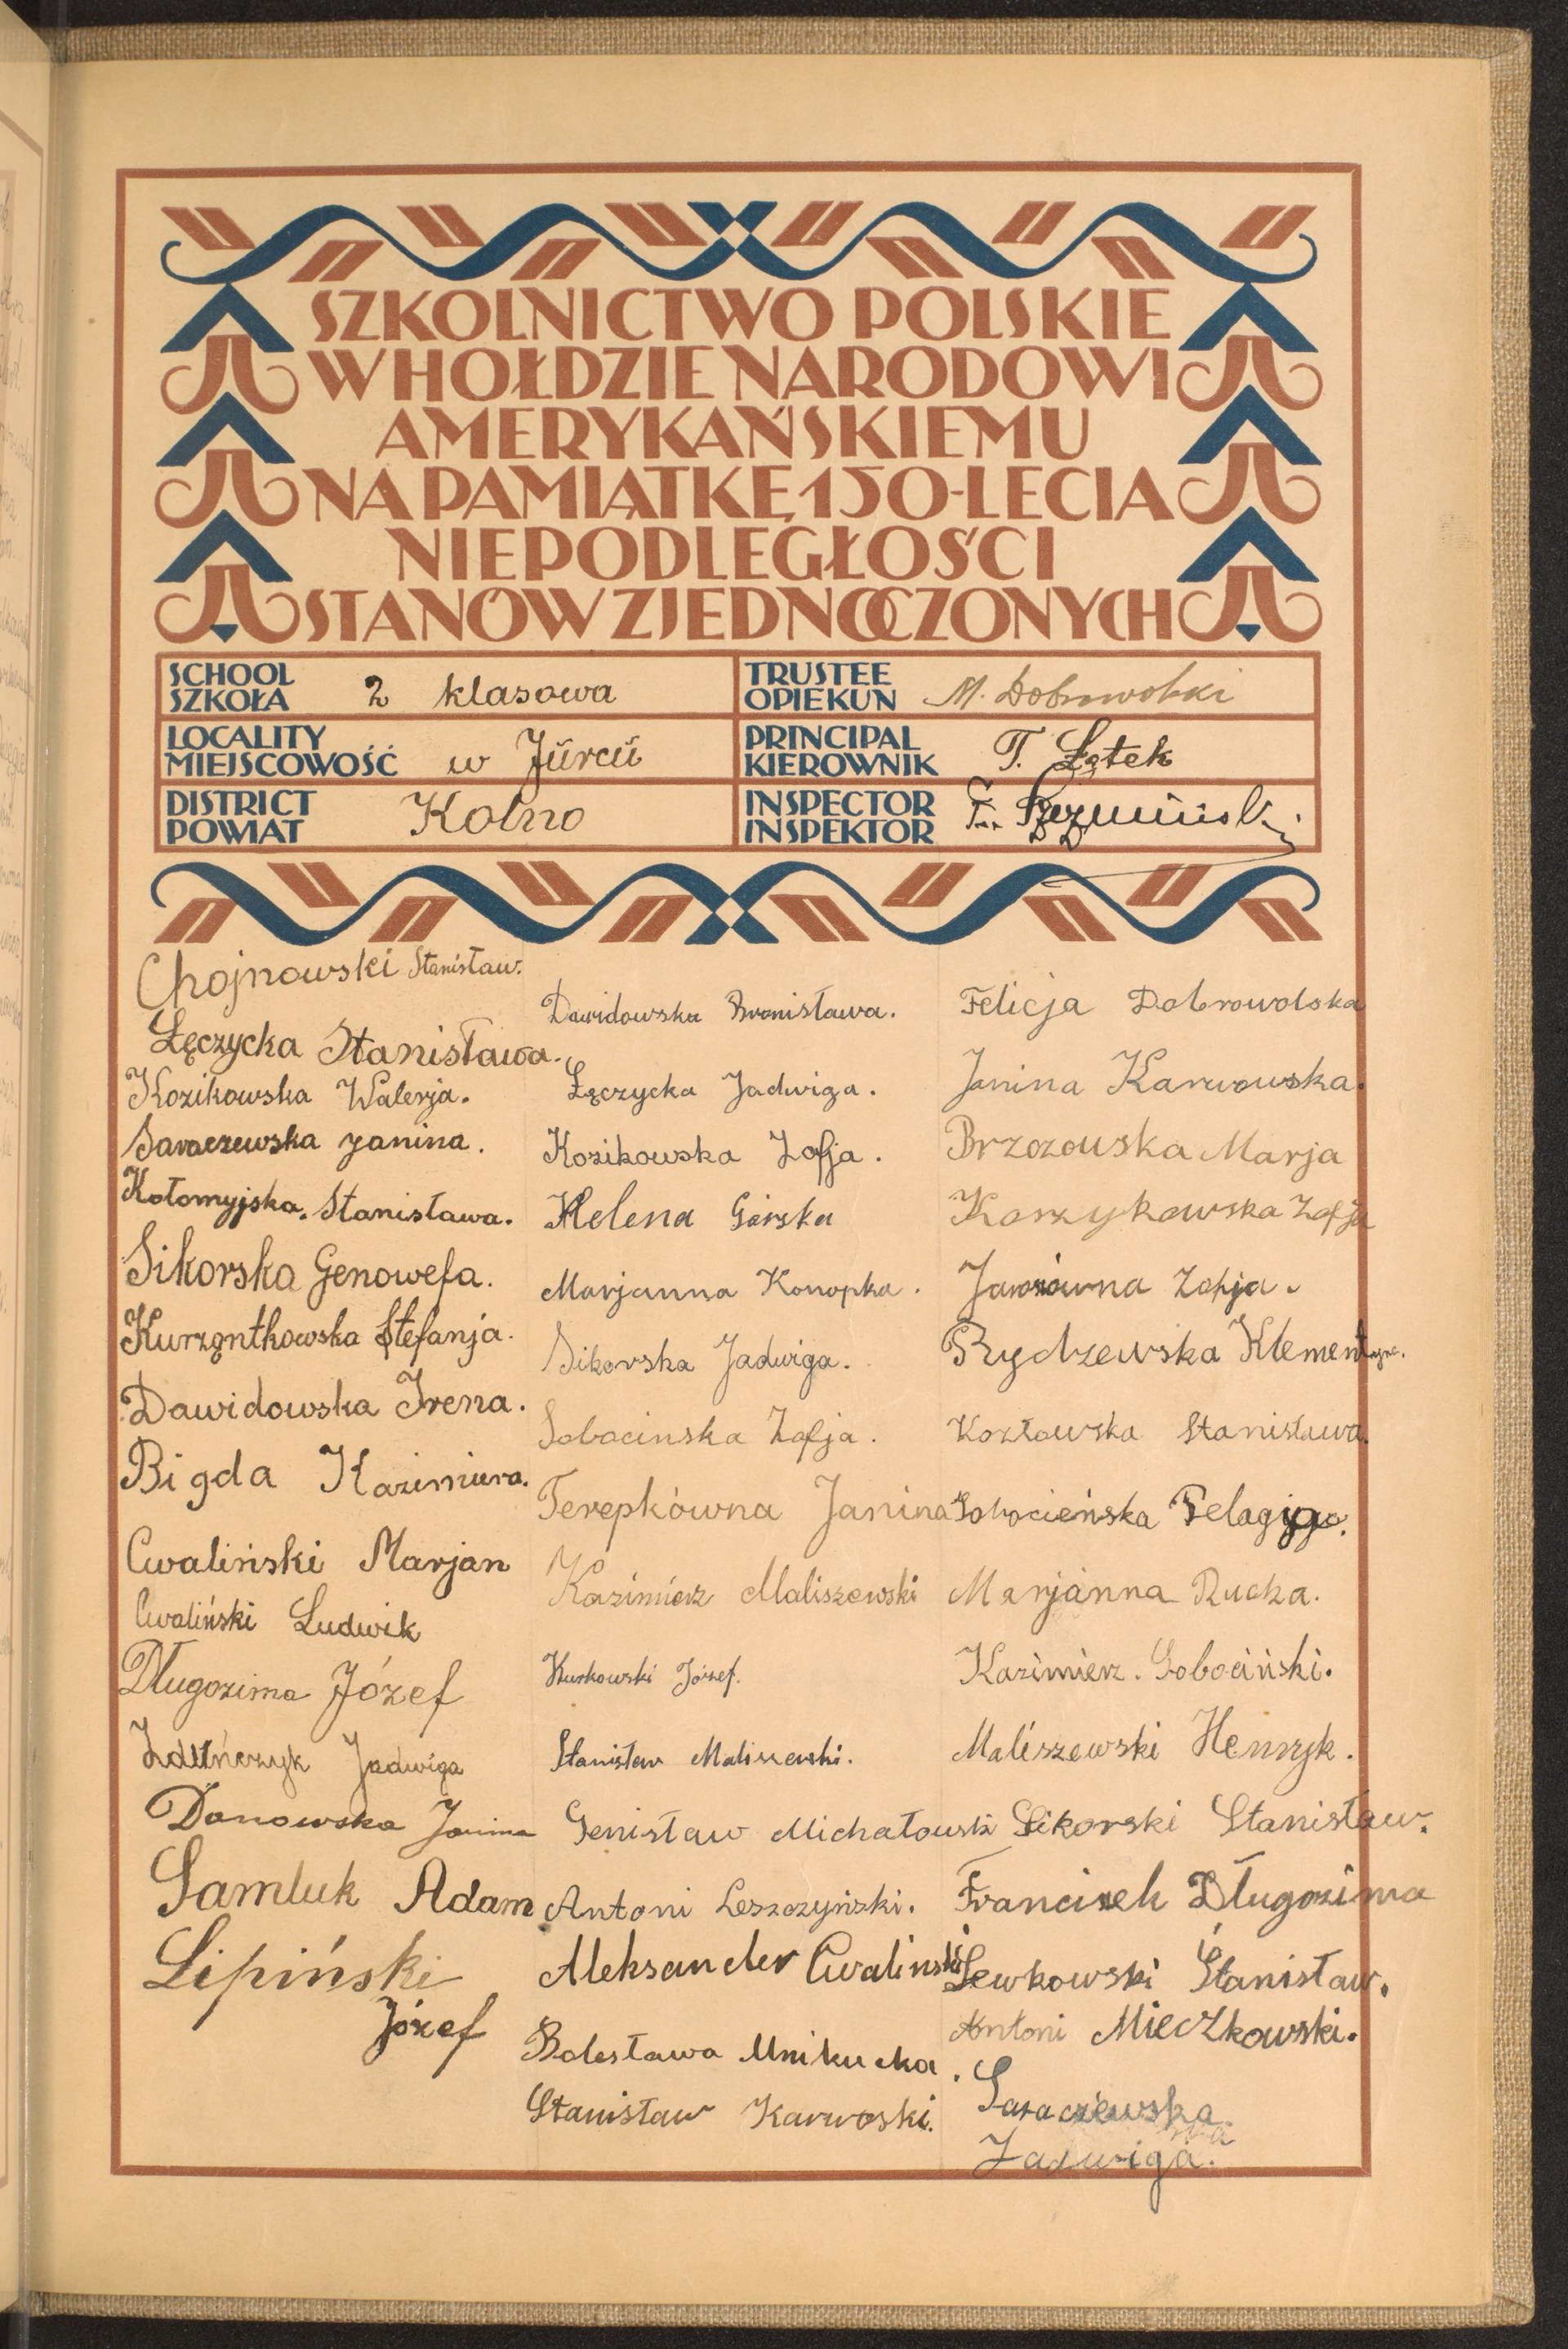 SZKOLNICTWO POLSKIE
W HOŁDZIE NARODOWI
AMERYKAŃSKIEMU
NA PAMIĄTKĘ 150-LECIA
NIEPODLEGŁOŚCI
STANÓW ZJEDNOCZONYCH
SCHOOL
SZKOŁA 2 klasowa
TRUSTEE
OPIEKUN M. Dobrowolski
LOCALITY
MIEJSCOWOŚĆ w Jurcu
PRINCIPAL
KIEROWNIK T. Łątek
DISTRICT
POWIAT Kolno
INSPECTOR
INSPEKTOR
Chojnowski Stanisław.
Łęczycka Stanisława.
Kozikowska Walerja.
Saraczewska Janina.
Kołomyjska. Stanisława.
Sikorska Genowefa.
Kurząntkowska Stefanja.
Dawidowska Irena.
Bigda Kazimiera.
Cwaliński Marjan
Cwaliński Ludwik
Długozima Józef
Jadwiga
Danowska Janina
Samluk Adam
Lipiński
Józef
Dawidowska Bronisława.
Łęczycka Jadwiga.
Kozikowska Zofja.
Helena Górska
Marjanna Konopka.
Sikorska Jadwiga.
Sobocinska Zofja.
Terepkówna Janina
Kazimierz Maliszewski
Kurkowski Józef.
Stanisław Maliszewski.
Genisław Michałowski
Antoni Leszczyński.
Aleksander Cwaliński
Bolesława
Stanisław Karwoski.
Felicja Dobrowolska
Janina Karwowska.
Brzozowska Marja
Korzykowska Zofja
Zofja.
Rydzewska Klementyna.
Kozłowska Stanisława.
Sobocieńska Pelagija.
Marjanna Rucka.
Kazimierz. Sobociński.
Maliszewski Henryk.
Sikorski Stanisław.
Franciszek Długozima
Lewkowski Stanisław.
Antoni Mieczkowski.
Saraczewska
Jadwiga.